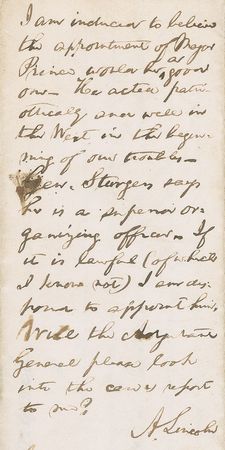 I am induced to believe
the appointment of Major
Prince would be a good
one. He acted patri-
otically and well in
the West in the begin-
ning of our troubles.
Gen. Sturges says
he is a superior or-
ganizing officer. If
it is lawful (of which
I know not) I am dis-
posed to appoint him.
Will the Adjutant
General please look
into the case & report
to me?
A. Lincoln